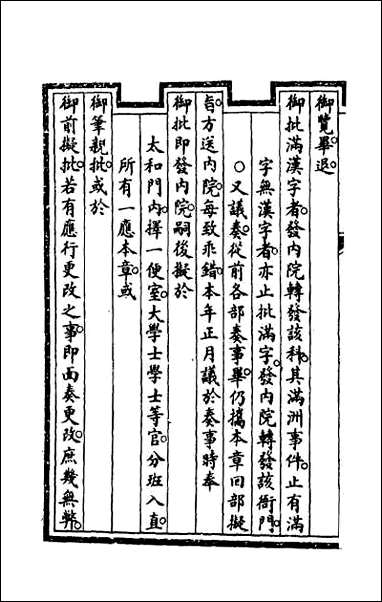 御覽畢退
御批滿漢字者發内院轉發該科其滿洲事件止有滿
字無漢字者亦止批滿字發内院轉發該衙門
○又議奏從前各部奏事畢仍攜本章回部擬
旨方送内院每致乖錯本年正月議於奏事時奉
御批即發内院嗣後擬於
太和門内擇一便室大學士學士等官分班入直
所有一應本章或
御筆親批或於
御前擬批若有應行更改之事即面奏更改庶幾無弊